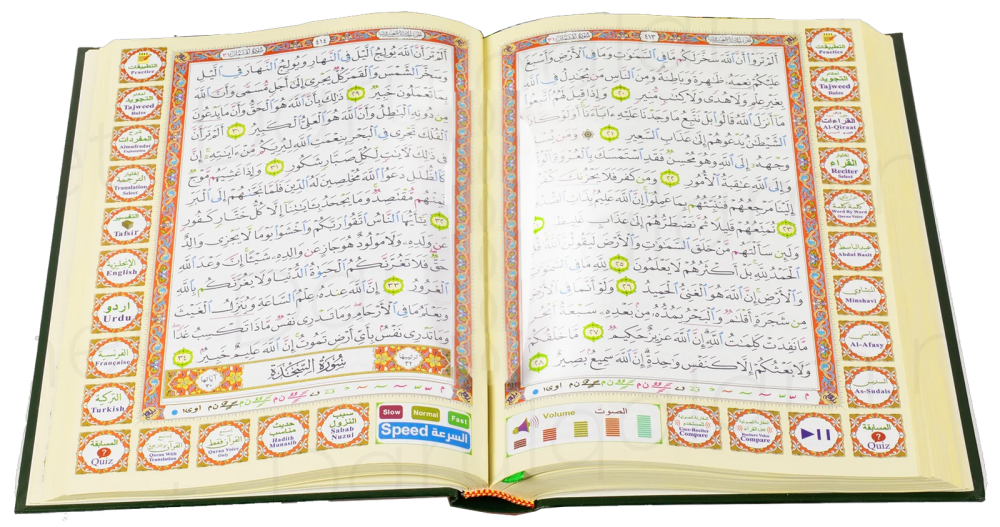 ٤١٣
أَلَمْ تَرَوْا۟ أَنَّ ٱللَّهَ سَخَّرَ لَكُم مَّا فِى ٱلسَّمَٰوَٰتِ وَمَا فِى ٱلْأَرْضِ وَأَسْبَغَ
عَلَيْكُمْ نِعَمَهُۥ ظَٰهِرَةً وَبَاطِنَةً ۗ وَمِنَ ٱلنَّاسِ مَن يُجَٰدِلُ فِى ٱللَّهِ
بِغَيْرِ عِلْمٍ وَلَا هُدًى وَلَا كِتَٰبٍ مُّنِيرٍ ٢٠ وَإِذَا قِيلَ لَهُمُ ٱتَّبِعُوا۟
مَآ أَنزَلَ ٱللَّهُ قَالُوا۟ بَلْ نَتَّبِعُ مَا وَجَدْنَا عَلَيْهِ ءَابَآءَنَآ ۚ أَوَلَوْ كَانَ
ٱلشَّيْطَٰنُ يَدْعُوهُمْ إِلَىٰ عَذَابِ ٱلسَّعِيرِ ٢١ ۞ وَمَن يُسْلِمْ
وَجْهَهُۥٓ إِلَى ٱللَّهِ وَهُوَ مُحْسِنٌ فَقَدِ ٱسْتَمْسَكَ بِٱلْعُرْوَةِ ٱلْوُثْقَىٰ ۗ
وَإِلَى ٱللَّهِ عَٰقِبَةُ ٱلْأُمُورِ ٢٢ وَمَن كَفَرَ فَلَا يَحْزُنكَ كُفْرُهُۥٓ ۚ
إِلَيْنَا مَرْجِعُهُمْ فَنُنَبِّئُهُم بِمَا عَمِلُوٓا۟ ۚ إِنَّ ٱللَّهَ عَلِيمٌۢ بِذَاتِ ٱلصُّدُورِ
٢٣ نُمَتِّعُهُمْ قَلِيلًا ثُمَّ نَضْطَرُّهُمْ إِلَىٰ عَذَابٍ غَلِيظٍ ٢٤
وَلَئِن سَأَلْتَهُم مَّنْ خَلَقَ ٱلسَّمَٰوَٰتِ وَٱلْأَرْضَ لَيَقُولُنَّ ٱللَّهُ ۚ قُلِ
ٱلْحَمْدُ لِلَّهِ ۚ بَلْ أَكْثَرُهُمْ لَا يَعْلَمُونَ ٢٥ لِلَّهِ مَا فِى ٱلسَّمَٰوَٰتِ
وَٱلْأَرْضِ ۚ إِنَّ ٱللَّهَ هُوَ ٱلْغَنِىُّ ٱلْحَمِيدُ ٢٦ وَلَوْ أَنَّمَا فِى ٱلْأَرْضِ
مِن شَجَرَةٍ أَقْلَٰمٌ وَٱلْبَحْرُ يَمُدُّهُۥ مِنۢ بَعْدِهِۦ سَبْعَةُ أَبْحُرٍ
مَّا نَفِدَتْ كَلِمَٰتُ ٱللَّهِ ۗ إِنَّ ٱللَّهَ عَزِيزٌ حَكِيمٌ ٢٧ مَّا خَلْقُكُمْ
وَلَا بَعْثُكُمْ إِلَّا كَنَفْسٍ وَٰحِدَةٍ ۗ إِنَّ ٱللَّهَ سَمِيعٌۢ بَصِيرٌ ٢٨
التطبيقات
Practice
أحكام
التجويد
Tajweed
Rules
القراءات
Al-Qiraat
إختيار
القراء
Reciter
Select
كلمة كلمة
Word By Word
Quran Voice
عبد الباسط
Abdul Basit
منشاوي
Minshavi
العفاسي
Al-Afasy
السديس
As-Sudais
المسابقة
?
Quiz
Volume الصوت
User-Reciter
Compare
Reciters Voice
Compare
٤١٤
أَلَمْ تَرَ أَنَّ ٱللَّهَ يُولِجُ ٱلَّيْلَ فِى ٱلنَّهَارِ وَيُولِجُ ٱلنَّهَارَ فِى ٱلَّيْلِ
وَسَخَّرَ ٱلشَّمْسَ وَٱلْقَمَرَ كُلٌّ يَجْرِىٓ إِلَىٰٓ أَجَلٍ مُّسَمًّى وَأَنَّ ٱللَّهَ
بِمَا تَعْمَلُونَ خَبِيرٌ ٢٩ ذَٰلِكَ بِأَنَّ ٱللَّهَ هُوَ ٱلْحَقُّ وَأَنَّ مَا يَدْعُونَ
مِن دُونِهِ ٱلْبَٰطِلُ وَأَنَّ ٱللَّهَ هُوَ ٱلْعَلِىُّ ٱلْكَبِيرُ ٣٠ أَلَمْ تَرَ أَنَّ
ٱلْفُلْكَ تَجْرِى فِى ٱلْبَحْرِ بِنِعْمَتِ ٱللَّهِ لِيُرِيَكُم مِّنْ ءَايَٰتِهِۦٓ ۚ إِنَّ
فِى ذَٰلِكَ لَءَايَٰتٍ لِّكُلِّ صَبَّارٍ شَكُورٍ ٣١ وَإِذَا غَشِيَهُم مَّوْجٌ
كَٱلظُّلَلِ دَعَوُا۟ ٱللَّهَ مُخْلِصِينَ لَهُ ٱلدِّينَ فَلَمَّا نَجَّىٰهُمْ إِلَى ٱلْبَرِّ
فَمِنْهُم مُّقْتَصِدٌ ۚ وَمَا يَجْحَدُ بِـَٔايَٰتِنَآ إِلَّا كُلُّ خَتَّارٍ كَفُورٍ
٣٢ يَٰٓأَيُّهَا ٱلنَّاسُ ٱتَّقُوا۟ رَبَّكُمْ وَٱخْشَوْا۟ يَوْمًا لَّا يَجْزِى وَالِدٌ
عَن وَلَدِهِۦ وَلَا مَوْلُودٌ هُوَ جَازٍ عَن وَالِدِهِۦ شَيْـًٔا ۚ إِنَّ وَعْدَ ٱللَّهِ
حَقٌّ ۖ فَلَا تَغُرَّنَّكُمُ ٱلْحَيَوٰةُ ٱلدُّنْيَا وَلَا يَغُرَّنَّكُم بِٱللَّهِ
ٱلْغَرُورُ ٣٣ إِنَّ ٱللَّهَ عِندَهُۥ عِلْمُ ٱلسَّاعَةِ وَيُنَزِّلُ ٱلْغَيْثَ
وَيَعْلَمُ مَا فِى ٱلْأَرْحَامِ ۖ وَمَا تَدْرِى نَفْسٌ مَّاذَا تَكْسِبُ غَدًا ۖ
وَمَا تَدْرِى نَفْسٌۢ بِأَىِّ أَرْضٍ تَمُوتُ ۚ إِنَّ ٱللَّهَ عَلِيمٌ خَبِيرٌۢ ٣٤
سُورَةُ السَّجْدَةِ
التطبيقات
Practice
أحكام
التجويد
Tajweed
Rules
شرح
المفردات
Almufradat
إختيار
الترجمة
Translation
Select
التفسير
Tafsir
الإنجليزية
English
اردو
Urdu
الفرنسية
Française
التركية
Turkish
المسابقة
?
Quiz
Quran With
Translation
القرآن فقط
Quran Voice
Only
حديث
مناسب
Hadith
Munasib
سبب
النزول
Sabab
Nuzul
Slow Normal Fast
Speed السرعة